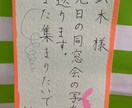 木様
先日の同窓会の写
送ります。
また集まりたいで